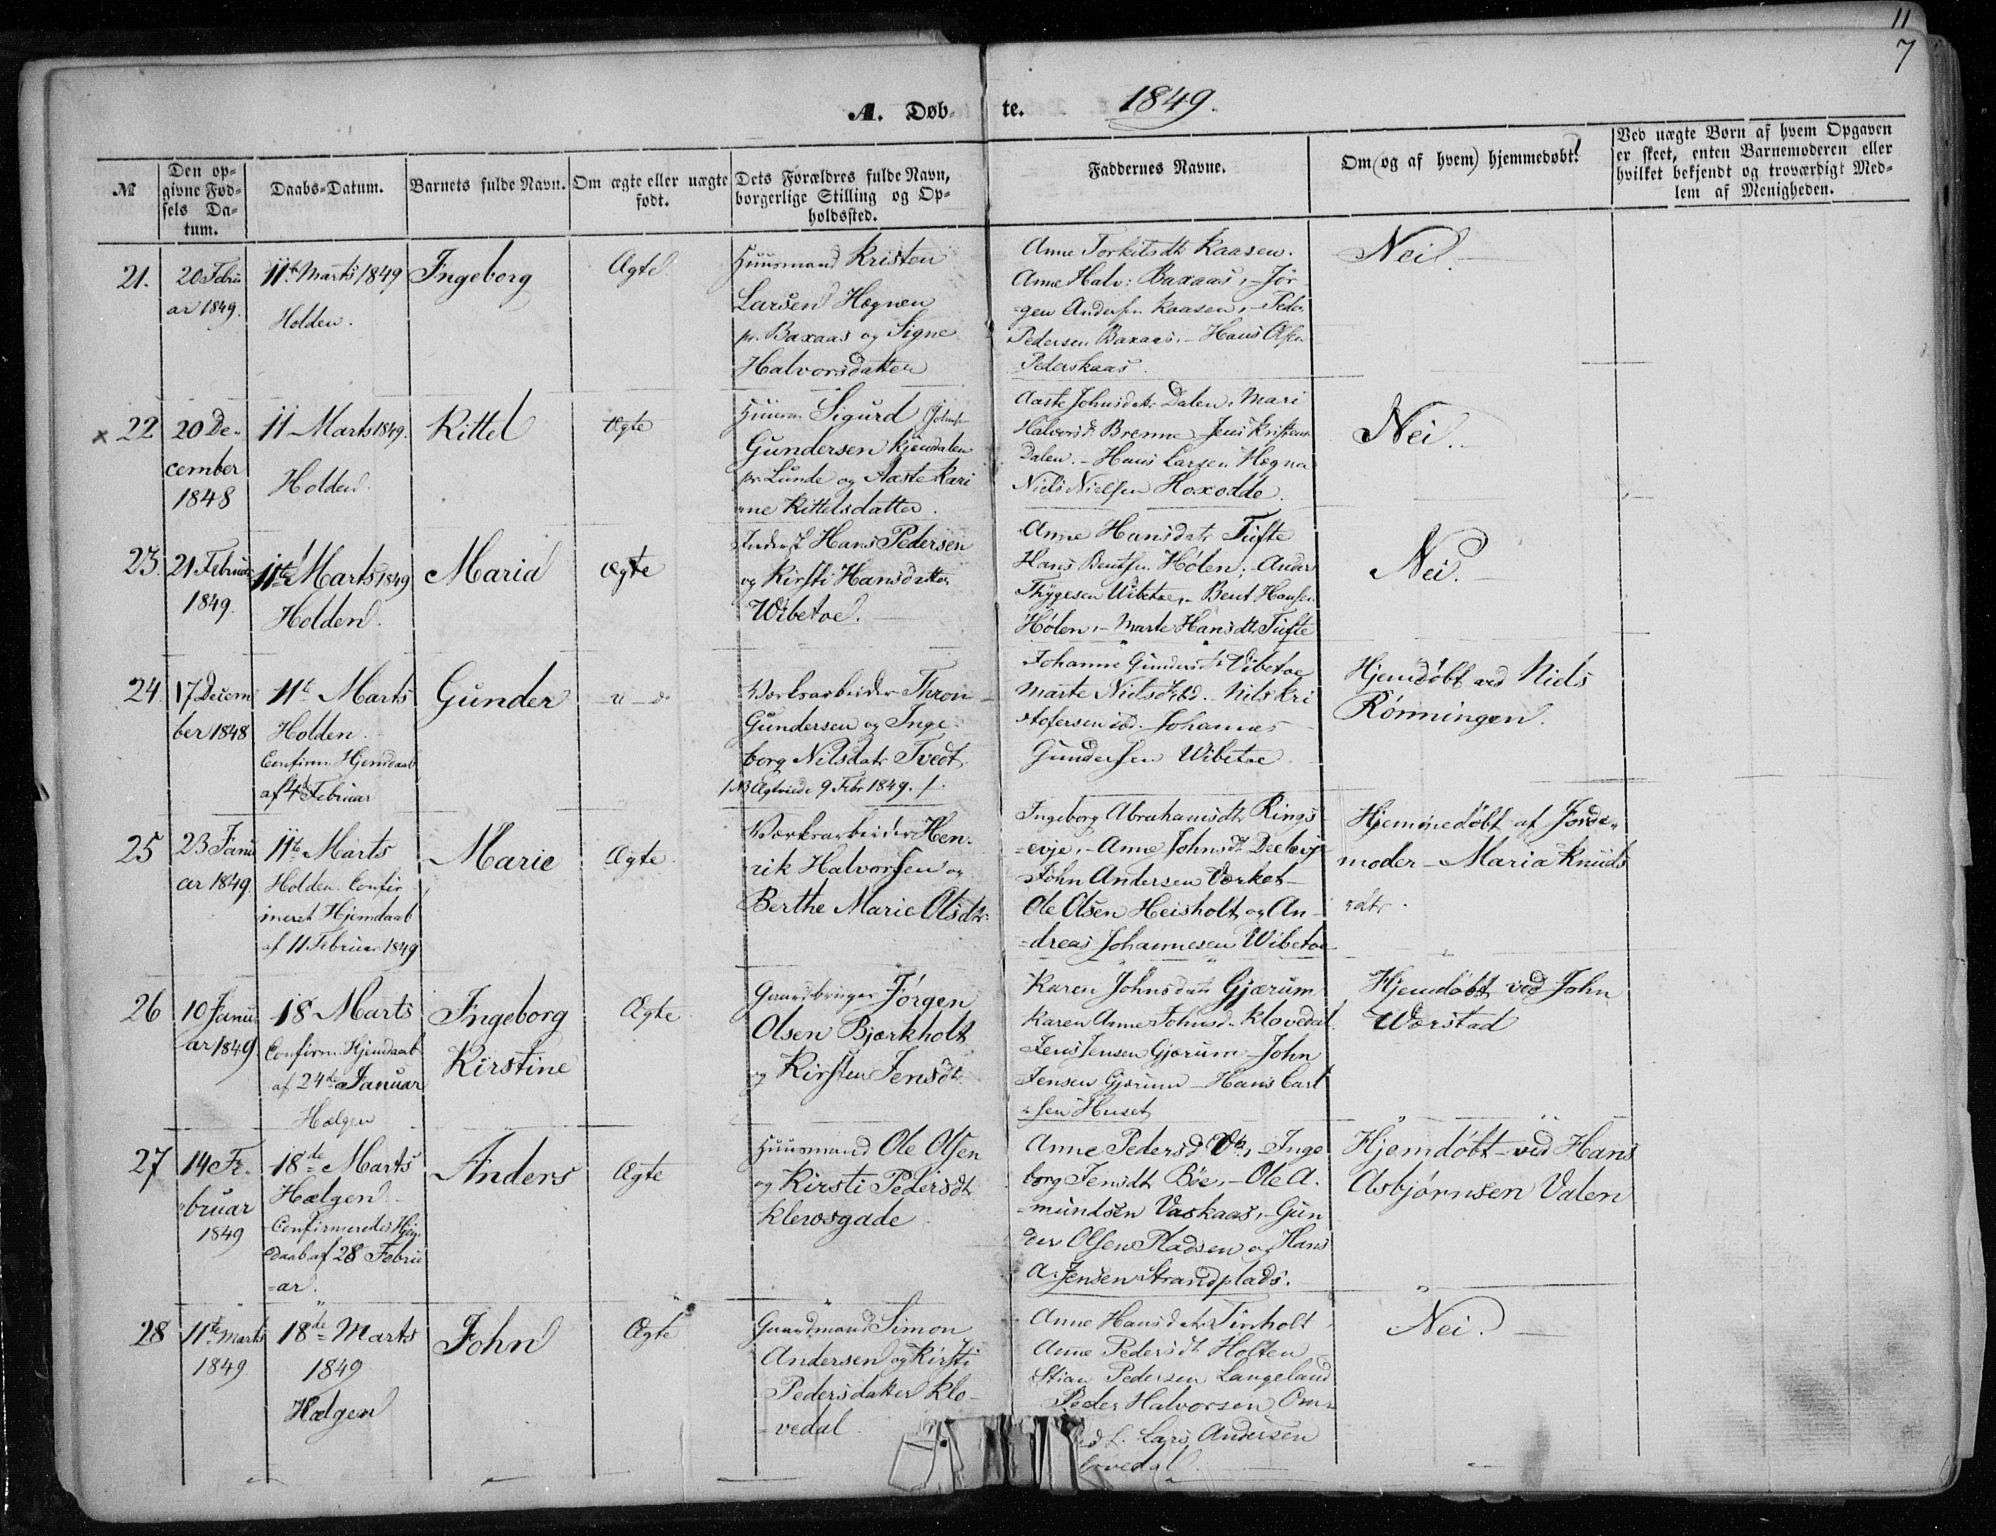 11
7
A. Døb-te. 1849.
№
Den op-
givne Fød-
sels Da-
tum.
Daabs-Datum.
Barnets fulde Navn.
Om ægte eller uægte
født.
Dets Forældres fulde Navn,
borgerlige Stilling og Op-
holdssted.
Faddernes Navne.
Om (og af hvem) hjemmedøbt?
Ved uægte Børn af hvem Opgaven
er skeet, enten Barnemoderen eller
hvilket bekjendt og troværdigt Med-
lem af Menigheden.
21.
20 Febru
ar 1849.
11te Marts 1849
Holden.
Ingeborg
Ægte
Huusmand Kristen
Larsen Hægnen
pr. Baxaas og Signe
Halvorsdatter
Anne Torkilsdt Kaasen.
Anne Halv: Baxaas, - Jör-
gen Andersen Kaasen, - Peder
Pedersen Baxaas, - Hans Olsen
Pederskaas.
Nei. -
x 22
20 De-
cember
1848
11 Marts 1849.
Holden.
Kittel
Ægte
Huusm. Sigurd (Johns
Gundersen Kjendalen
pr Lunde og Aaste Kari
ne Kittelsdatter.
Aaste Johnsdatr Dalen, Mari
Halvorsdt Brenne, - Jens Kristens.
Dalen. - Hans Larsen Hægna
Niels Nielsen Hoxodde.
Nei. -
23.
21 Februar
1849.
11te Marts 1849
Holden.
Maria
Ægte
Inderst Hans Pedersen
og Kirsti Hansdatter
Wibetoe.
Anne Hansdatr Tufte
Hans Bentsen Hølen, Ander
Thygesen Wibetoe, - Bent Hansen
Hølen, - Marte Hansdt Tufte
Nei. -
24
17 Decem
ber 1848
11te Marts
Holden.
Confirm. Hjemdaab
af 4de Februar
Gunder
- u - o
Værksarbeider Thron
Gundersen og Inge-
borg Nilsdatr Tvedt.
/NB Ægteviede 9 Febr 1849. /.
Johanne Gundersdt Vibetoe
Marte Nielsdt ibd. Nils Kri
stofersen ibd. Johannes
Gundersen Wibetoe
Hjemdøbt ved Niels
Rønningen.
25
23 Janu
ar 1849.
11te Marts
Holden. Confir
meret Hjemdaab
af 11 Februar 1849
Marie
Ægte.
Værksarbeider Hen-
rik Halvorsen og
Berthe Marie Olsdtr.
Ingeborg Abrahamsdt Rings-
evje, - Anne Johnsdt Deelevje
John Andersen Værket -
Ole Olsen Heisholt og An-
dreas Johannesen Wibetoe
Hjemmedøbt af Jorde-
moder - Maria Knuds
datr.
26
10 Janu
ar 1849
18 Marts
Confirm. Hjemdaab
af 24de Januar
Hælgen
Ingeborg
Kirstine
Ægte
Gaardbruger Jørgen
Olsen Bjærkholt
og Kirsten Jensdt.
Karen Johnsdatt Gjærum
Karen Anne Johnsd. Klovedal.
Jens Jensen Gjærum - John
Jensen Gjærum - Hans Carl
sen Huset
Hjemdøbt ved John
Wærstad
27
14 Fe-
bruar
1849
18de Marts
Hælgen
Confirmerede Hjem
daab af 28 Febru
ar.
Anders
Ægte
Huusmand Ole Olsen
og Kirsti Pedersdt
Klevsgade
Anne Pedersd , - Inge
borg Jensdt Bøe, - Ole A.
mundsen Vaskaas, - Gun
der Olsen Pladsen og Hans
A. Jensen Strandplads.
Hjemdøbt ved Hans
Asbjørnsen Valen
28
11te Marts
1849
18de Marts
1849
Hælgen
John
Ægte
Gaardmand Simon
Andersen og Kirsti
Pedersdatter Klo-
vedal.
Anne Hansdatr Tinholt
Anne Pedersdt Holten
Stian Pedersen Langeland
Peder Halvorsen Om-
Lars Andersen
ovedal
Nei. -